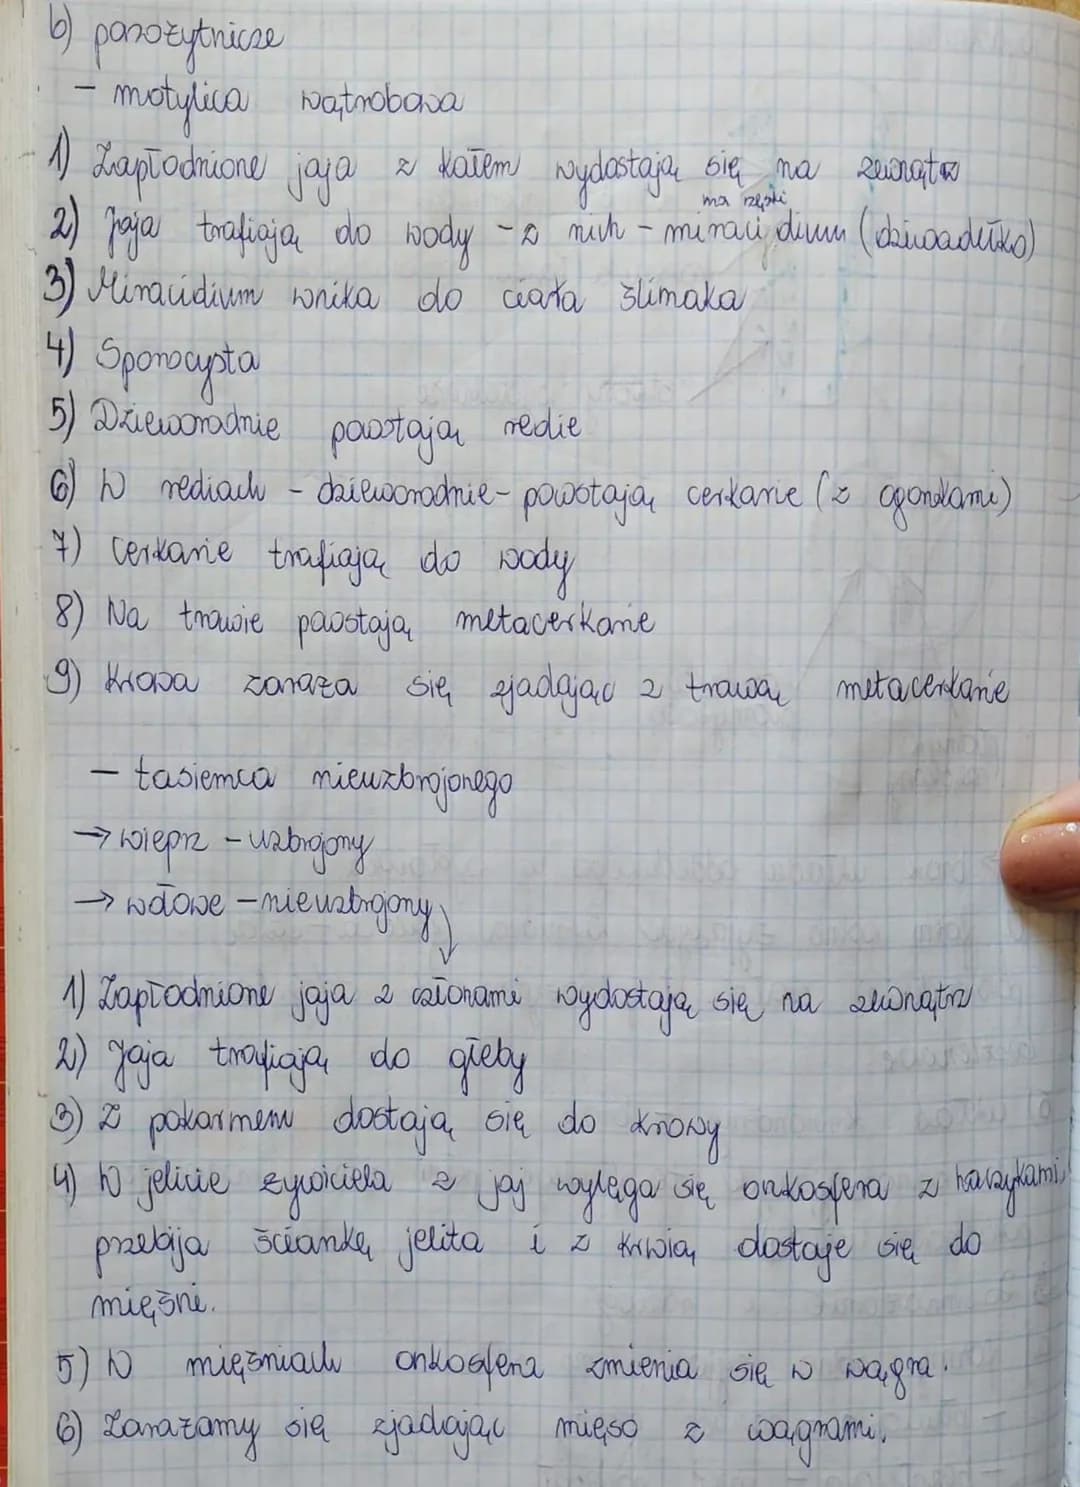 b) pasożytnicze
- motylica wątrobowa
1) Zapłodnione jaja z kałem wydostają się na zewnątrz
ma rzęski
2) Jaja trafiają do wody - z nich - miracidium (dziwadełko)
3) Miracidium wnika do ciała ślimaka
4) Sporocysta
5) Dzieworodnie powstają redie
6) W rediach - dzieworodnie - powstają cerkarie (z ogonkami)
7) Cerkarie trafiają do wody
8) Na trawie powstają metacerkarie
9) Krowa zaraża się zjadając z trawą metacerkarie
- tasiemca nieuzbrojonego
→ wieprz - uzbrojony
→ wołowe - nieuzbrojony
1) Zapłodnione jaja z członami wydostają się na zewnątrz
2) Jaja trafiają do gleby
3) Z pokarmem dostają się do krowy
4) W jelicie żywiciela z jaj wylęga się onkosfera z haczykami,
przebija ściankę jelita i z krwią dostaje się do
mięśni.
5) W mięśniach onkosfera zmienia się w wągra.
6) Zarażamy się zjadając mięso z wągrami.